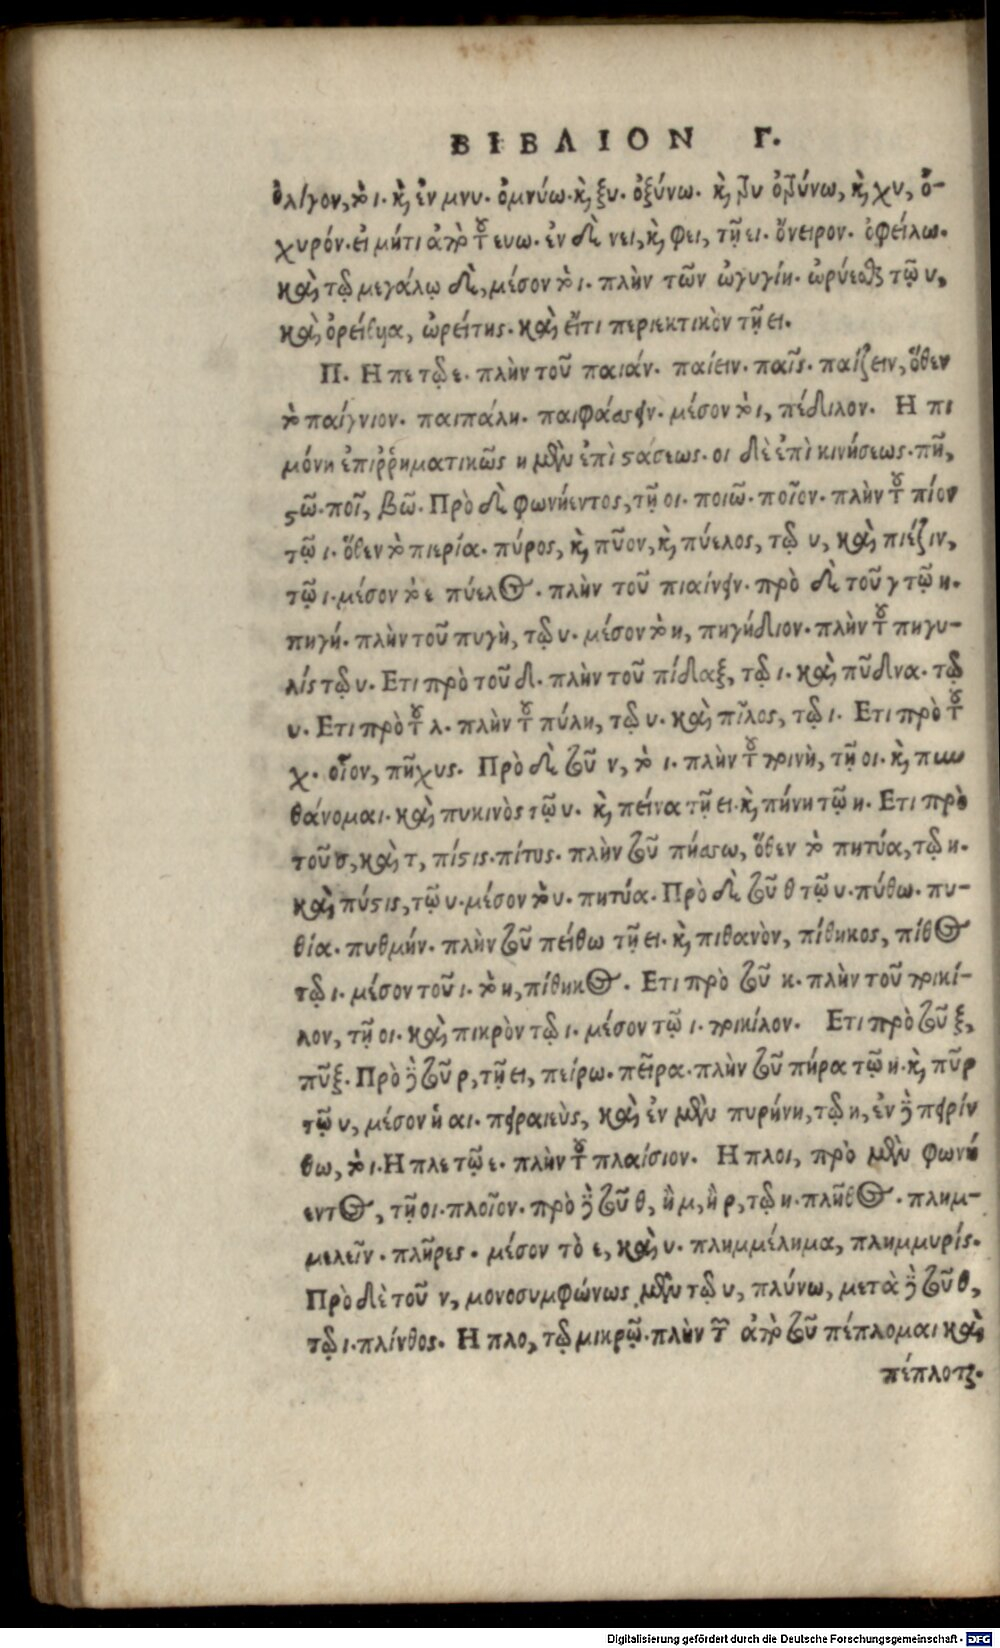 ΒΙΒΛΙΟΝ Γ.
ὀλίγον, τὸ ι. καὶ ἐν μνυ. ὀμνύω. καὶ ξυ. ὀξύνω. καὶ τρυ ὀτρύνω, καὶ χυ, ὀ-
χυρόν. εἰ μήτι ἀπὸ τοῦ ευω. ἐν δὲ νει, καὶ φει, τῇ ει. ὄνειρον. ὀφείλω.
καὶ τῷ μεγάλῳ δὲ, μέσον τὸ ι. πλὴν τῶν ὠγυγίη. ὠρύεσθαι τῷ υ,
καὶ ὀρείθυα, ὠρείτης. καὶ εἴτι περιεκτικὸν τῇ ει.
Π. Η πε τῷ ε. πλὴν τοῦ παιάν. παίειν. παῖς. παίζειν, ὅθεν
τὸ παίγνιον. παιπάλη. παιφάσσειν. μέσον τὸ ι, πέδιλον. Η πι
μόνη ἐπιῤῥηματικῶς η μὲν ἐπὶ στάσεως. οι δὲ ἐπὶ κινήσεως. πῆ,
στῶ. ποῖ, βῶ. Πρὸ δὲ φωνήεντος, τῇ οι. ποιῶ. ποῖον. πλὴν τοῦ πίον
τῷ ι. ὅθεν τὸ πιερία. πύρος, καὶ πῦον, καὶ πύελος, τῷ υ, καὶ πιέζιν,
τῷ ι. μέσον τὸ ε πύελος. πλὴν τοῦ πιαίνειν. πρὸ δὲ τοῦ γ τῷ η.
πηγή. πλὴν τοῦ πυγὴ, τῷ υ. μέσον τὸ η, πηγήδιον. πλὴν τοῦ πηγυ-
λίς τῷ υ. Ετι πρὸ τοῦ δ. πλὴν τοῦ πίδαξ, τῷ ι. καὶ πῦδνα. τῷ
υ. Ετι πρὸ τοῦ λ. πλὴν τοῦ πύλη, τῷ υ. καὶ πῖλος, τῷ ι. Ετι πρὸ τοῦ
χ. οἷον, πῆχυς. Πρὸ δὲ τοῦ ν, τὸ ι. πλὴν τοῦ ποινὴ, τῇ οι. καὶ πυν
θάνομαι. καὶ πυκινὸς τῷ υ. καὶ πείνα τῇ ει. καὶ πήνη τῷ η. Ετι πρὸ
τοῦ σ, καὶ τ, πίστις. πίτυς. πλὴν τοῦ πήσσω, ὅθεν τὸ πητύα, τῷ η.
καὶ πύστις, τῷ υ. μέσον τὸ υ. πητύα. Πρὸ δὲ τοῦ θ τῷ υ. πύθω. πυ-
θία. πυθμήν. πλὴν τοῦ πείθω τῇ ει. καὶ πιθανὸν, πίθηκος, πίθος
τῷ ι. μέσον τοῦ ι. τὸ η, πίθηκος. Ετι πρὸ τοῦ κ. πλὴν τοῦ ποικί-
λον, τῇ οι. καὶ πικρὸν τῷ ι. μέσον τῷ ι. ποικίλον. Ετι πρὸ τοῦ ξ,
πῦξ. Πρὸ δὲ τοῦ ρ, τῇ ει, πείρω. πεῖρα. πλὴν τοῦ πήρα τῷ η. καὶ πῦρ
τῷ υ, μέσον ἡ αι. πειραιεὺς, καὶ ἐν μὲν πυρήνη, τῷ η, ἐν δὲ πειρίν
θω, τὸ ι. Η πλε τῷ ε. πλὴν τοῦ πλαίσιον. Η πλοι, πρὸ μὲν φωνή
εντος, τῇ οι. πλοῖον. πρὸ δὲ τοῦ θ, ἢ μ, ἢ ρ, τῷ η. πλῆθος. πλημ-
μελεῖν. πλῆρες. μέσον τὸ ε, καὶ υ. πλημμέλημα, πλημμυρίς.
Πρὸ δὲ τοῦ ν, μονοσυμφώνως μὲν τῷ υ, πλύνω, μετὰ δὲ τοῦ θ,
τῷ ι. πλίνθος. Η πλο, τῷ μικρῷ. πλὴν τῶν ἀπὸ τοῦ πέπλομαι καὶ
πέπλοται.
Digitalisierung gefördert durch die Deutsche Forschungsgemeinschaft - DFG